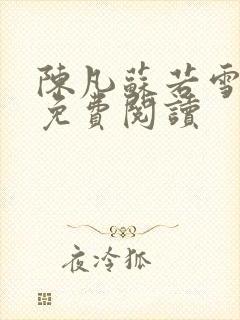 陳凡蘇若雪
免費閱讀
夜冷狐